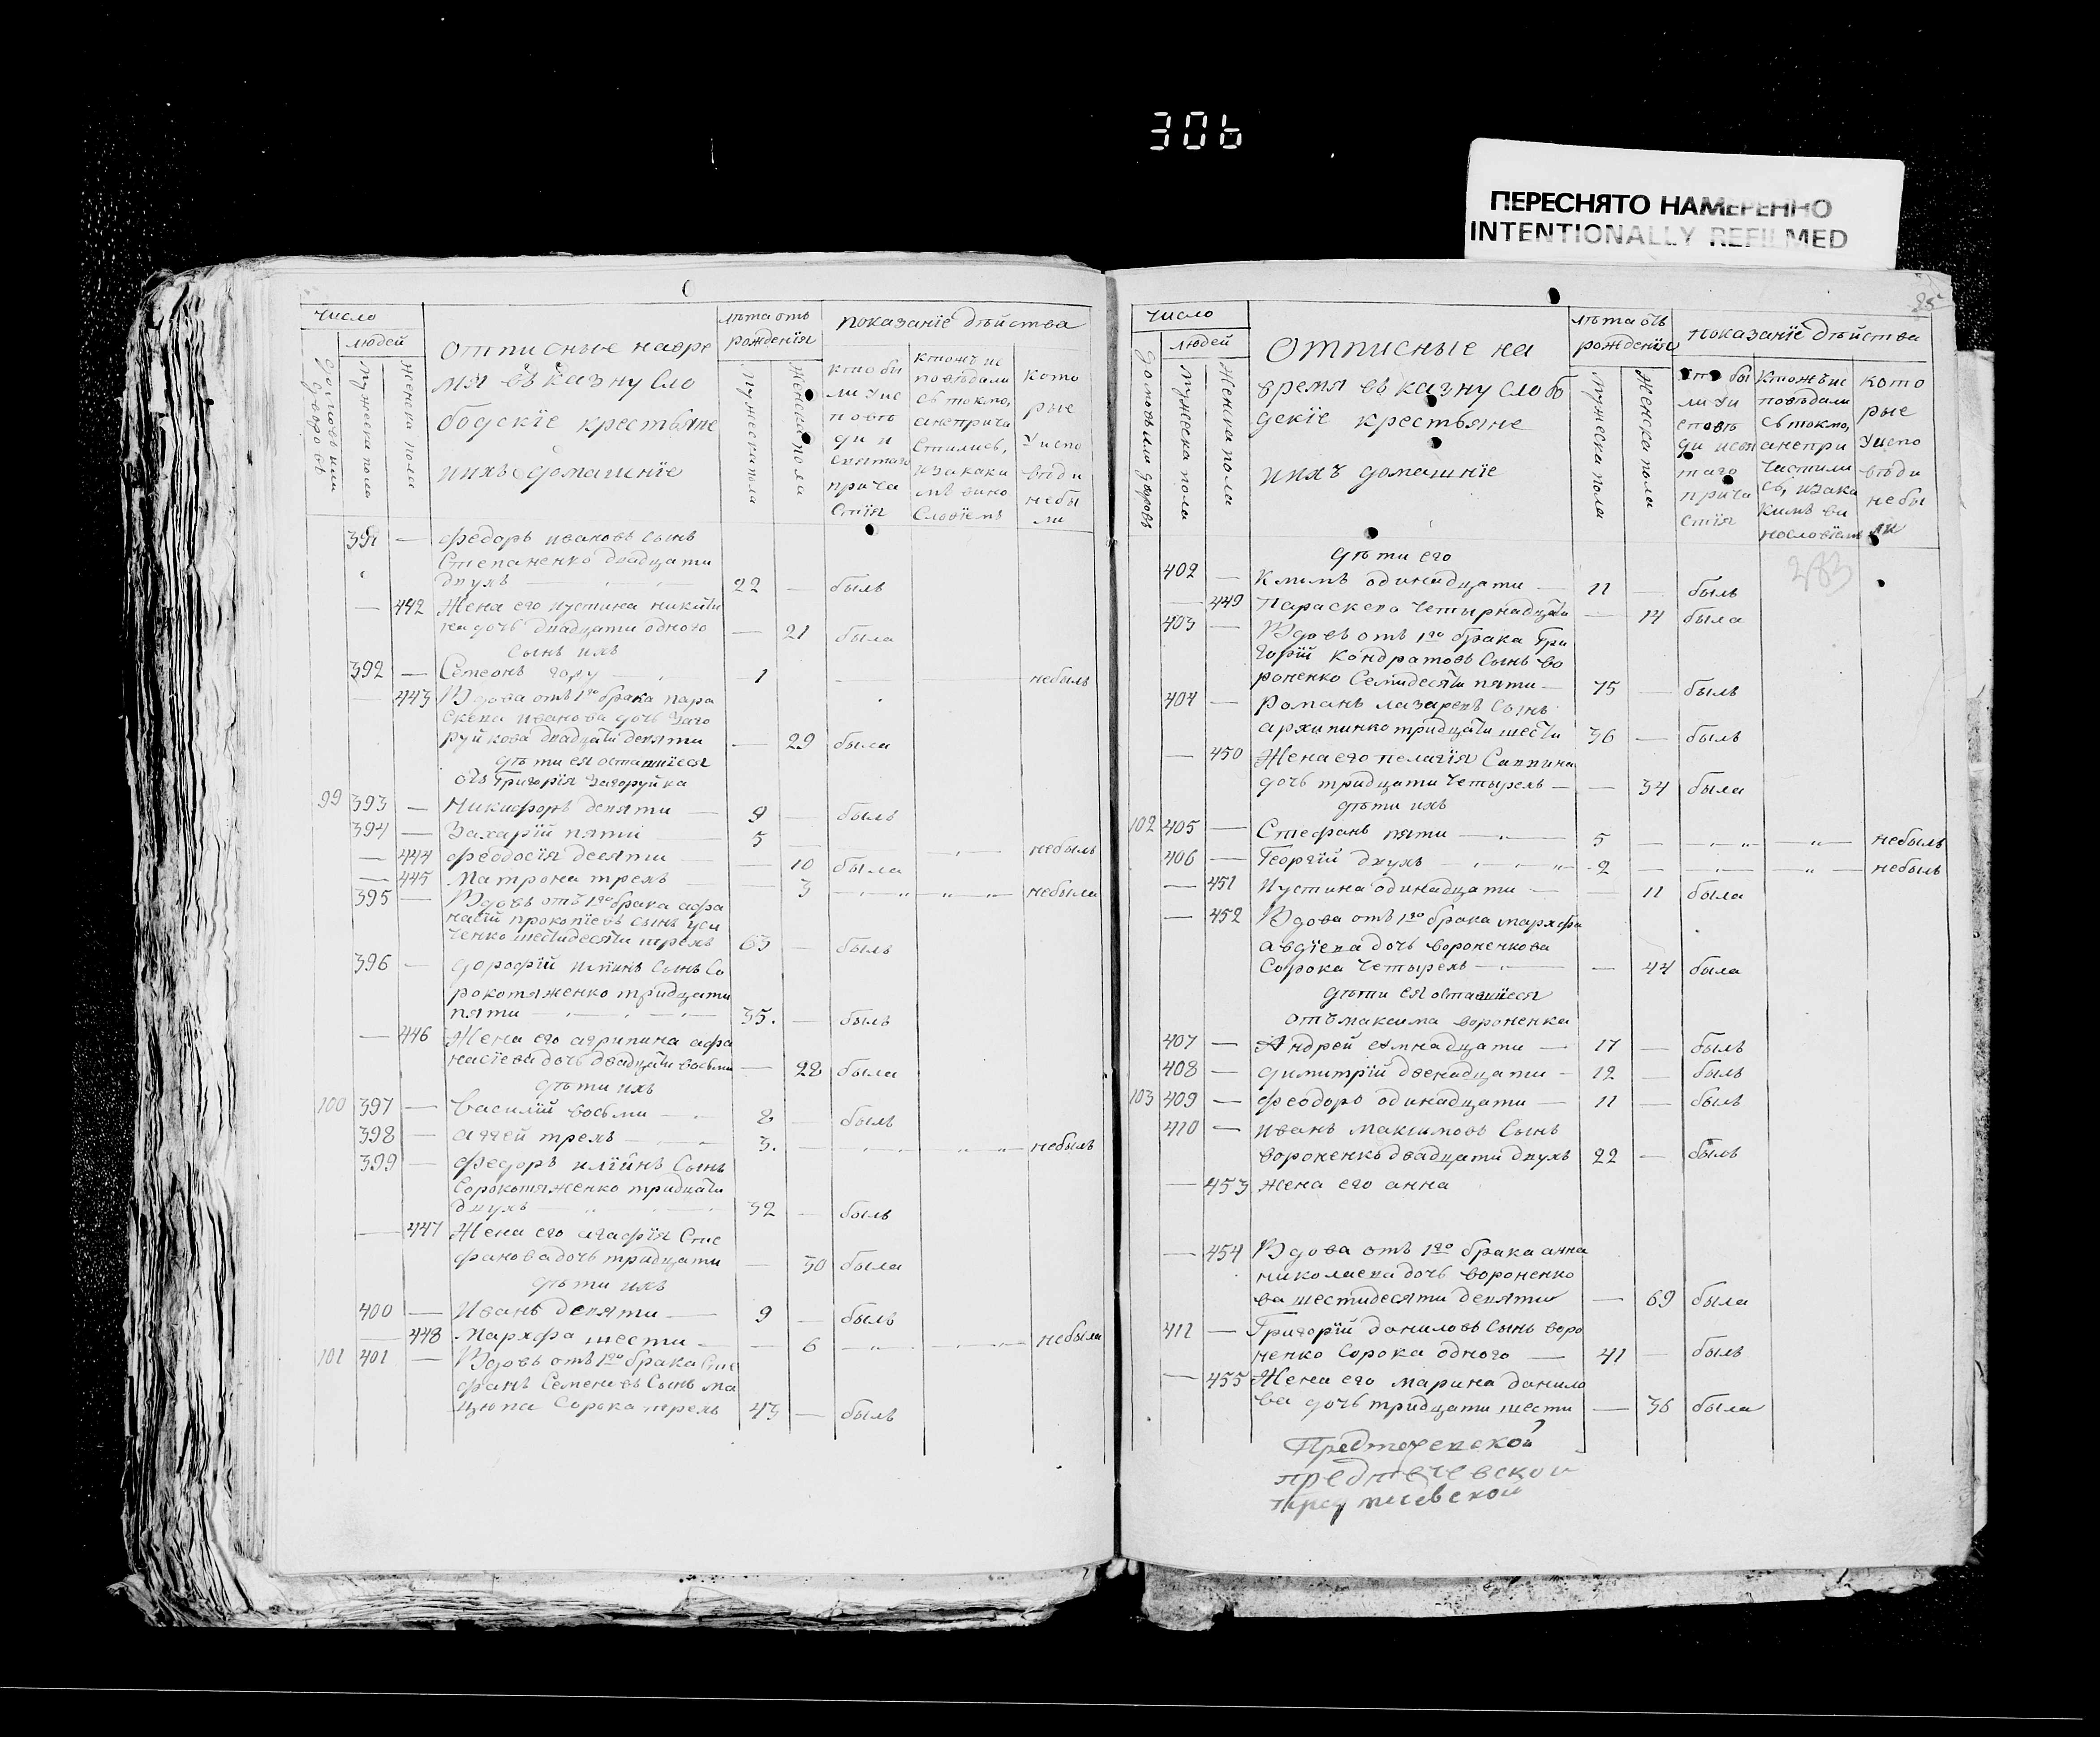 306
ПЕРЕСНЯТО НАМЕРЕННО
INTENTIONALLY REFILMED
число
людей
мужеска пола
женска пола
отписные навре
мя въ казну сло
бодскіе крестьяне
ихъ домашніе
лѣта отъ
рожденія
мужеска пола
женска пола
показаніе дѣйства
кото
рые
уиспо
вѣди
небы
ли
391 — Федоръ ивановъ сынъ
Степаненко двадцати
двухъ — 22 — былъ
— 442 Жена его иустина никити
на дочь двадцати одного — 21 была
сынъ ихъ
392 — Семеонъ году — 1 — небылъ
— 443 Вдова отъ 1го брака пара
скева иванова дочь Заго
руйкова двадцати девяти — 29 была
дѣти ея оставшіеся
отъ Григорія Загоруйка
99 393 — Никифоръ девяти — 9 — былъ
394 — Захарій пяти — 5 — небылъ
— 444 Феодосія десяти — 10 была
— 445 Матрона трехъ — 3 — небыла
395 — Вдовъ отъ 1го брака афа
насій прокопіевъ сынъ уса
ченко шестидесяти трехъ 63 — былъ
396 — дорофій илiинъ сынъ Со
рокотяженко тридцати
пяти — 35. — былъ
— 446 Жена его агрипина афа
насіева дочь двадцати восьми — 28 была
дѣти ихъ
100 397 — василій восьми — 8 — былъ
398 — аггей трехъ — 3. — небылъ
399 — Федоръ иліинъ Сынъ
Сорокотяженко тридцати
двухъ — 32 — былъ
— 447 Жена его агафія Сте
фанова дочь тридцати — 30 была
дѣти ихъ
400 — Иванъ девяти — 9 — былъ
— 448 Марфа шести — 6 — небыла
101 401 — Вдовъ отъ 1го брака Сте
фанъ Семеновъ Сынъ ма
цюпа Сорока трехъ 43 — былъ
85
число
людей
домовъ или дворовъ
мужеска пола
женска пола
отписные на
время въ казну слобо
дскіе крестьяне
ихъ домашніе
лѣта отъ
рожденія
мужеска пола
женска пола
показаніе дѣйства
кото
рые
уиспо
вѣди
небы
ли
283
дѣти его
402 — Климъ одинадцати — 11 — былъ
— 449 Параскева четырнадцати — 14 была
403 — Вдовъ отъ 1го брака Гри
горій Кондратовъ Сынъ во
роненко Семидесяти пяти — 75 — былъ
404 — Романъ лазаревъ Сынъ
архипинко тридцати шести 36 — былъ
— 450 Жена его пелагія Саввина
дочь тридцати четырехъ — — 34 была
дѣти ихъ
102 405 — Стефанъ пяти — 5 — небылъ
406 — Георгій двухъ — 2 — небылъ
— 451 Иустина одинадцати — — 11 была
— 452 Вдова отъ 1го брака марфа
авдіева дочь вороненкова
Сорока четырехъ — — 44 была
дѣти ея оставшіеся
отъ максима вороненка
407 — Андрей семнадцати — 17 — былъ
408 — димитрій двенадцати — 12 — былъ
103 409 — Феодоръ одинадцати — 11 — былъ
410 — иванъ максимовъ Сынъ
вороненко двадцати двухъ 22 — былъ
— 453 жена его анна
— 454 Вдова отъ 1го брака анна
николаева дочь вороненко
ва шестидесяти девяти — 69 была
411 — Григорій даниловъ Сынъ воро
ненко Сорока одного — 41 — былъ
— 455 Жена его марина данило
ва дочь тридцати шести — 36 была
предтечевской